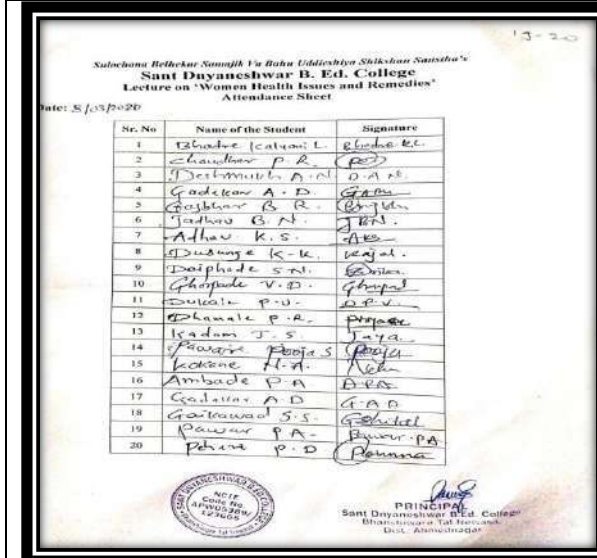 19-20
Sulochana Belhekar Samajik Va Bahu Uddieshiya Shikshan Sanstha's
Sant Dnyaneshwar B. Ed. College
Lecture on 'Women Health Issues and Remedies'
Attendance Sheet
Date: 8/03/2020
Sr. No Name of the Student Signature
1 Bhadre Kalyani L. Bhadre K.L.
2 Chaudhar P. R.
3 Deshmukh A. N. D. A. N.
4 Gadekar A. D.
5 B. R.
6 Jadhav B. N. JBN.
7 Adhav K. S.
8 Dusunge K. K. Kajal.
9 Daiphade S. N.
10 Ghorpade V. D.
11 P. U. D. P. U.
12 Dhanale P. R.
13 Kadam J. S. Jaya
14 Pooja S Pooja
15 Kokane N. A. Neha
16 Ambade P. A A.P.A.
17 Gadekar A. D G. A. D
18 Gaikawad S. S.
19 Pawar P. A. Pawar. P A
20 P. D
SANT DNYANESHWAR B.ED.COLLEGE
NCTE
Code No.
PRINCIPAL
Sant Dnyaneshwar B.Ed. College
Bhanashivara Tal Newasa,
Dist. Ahmednagar